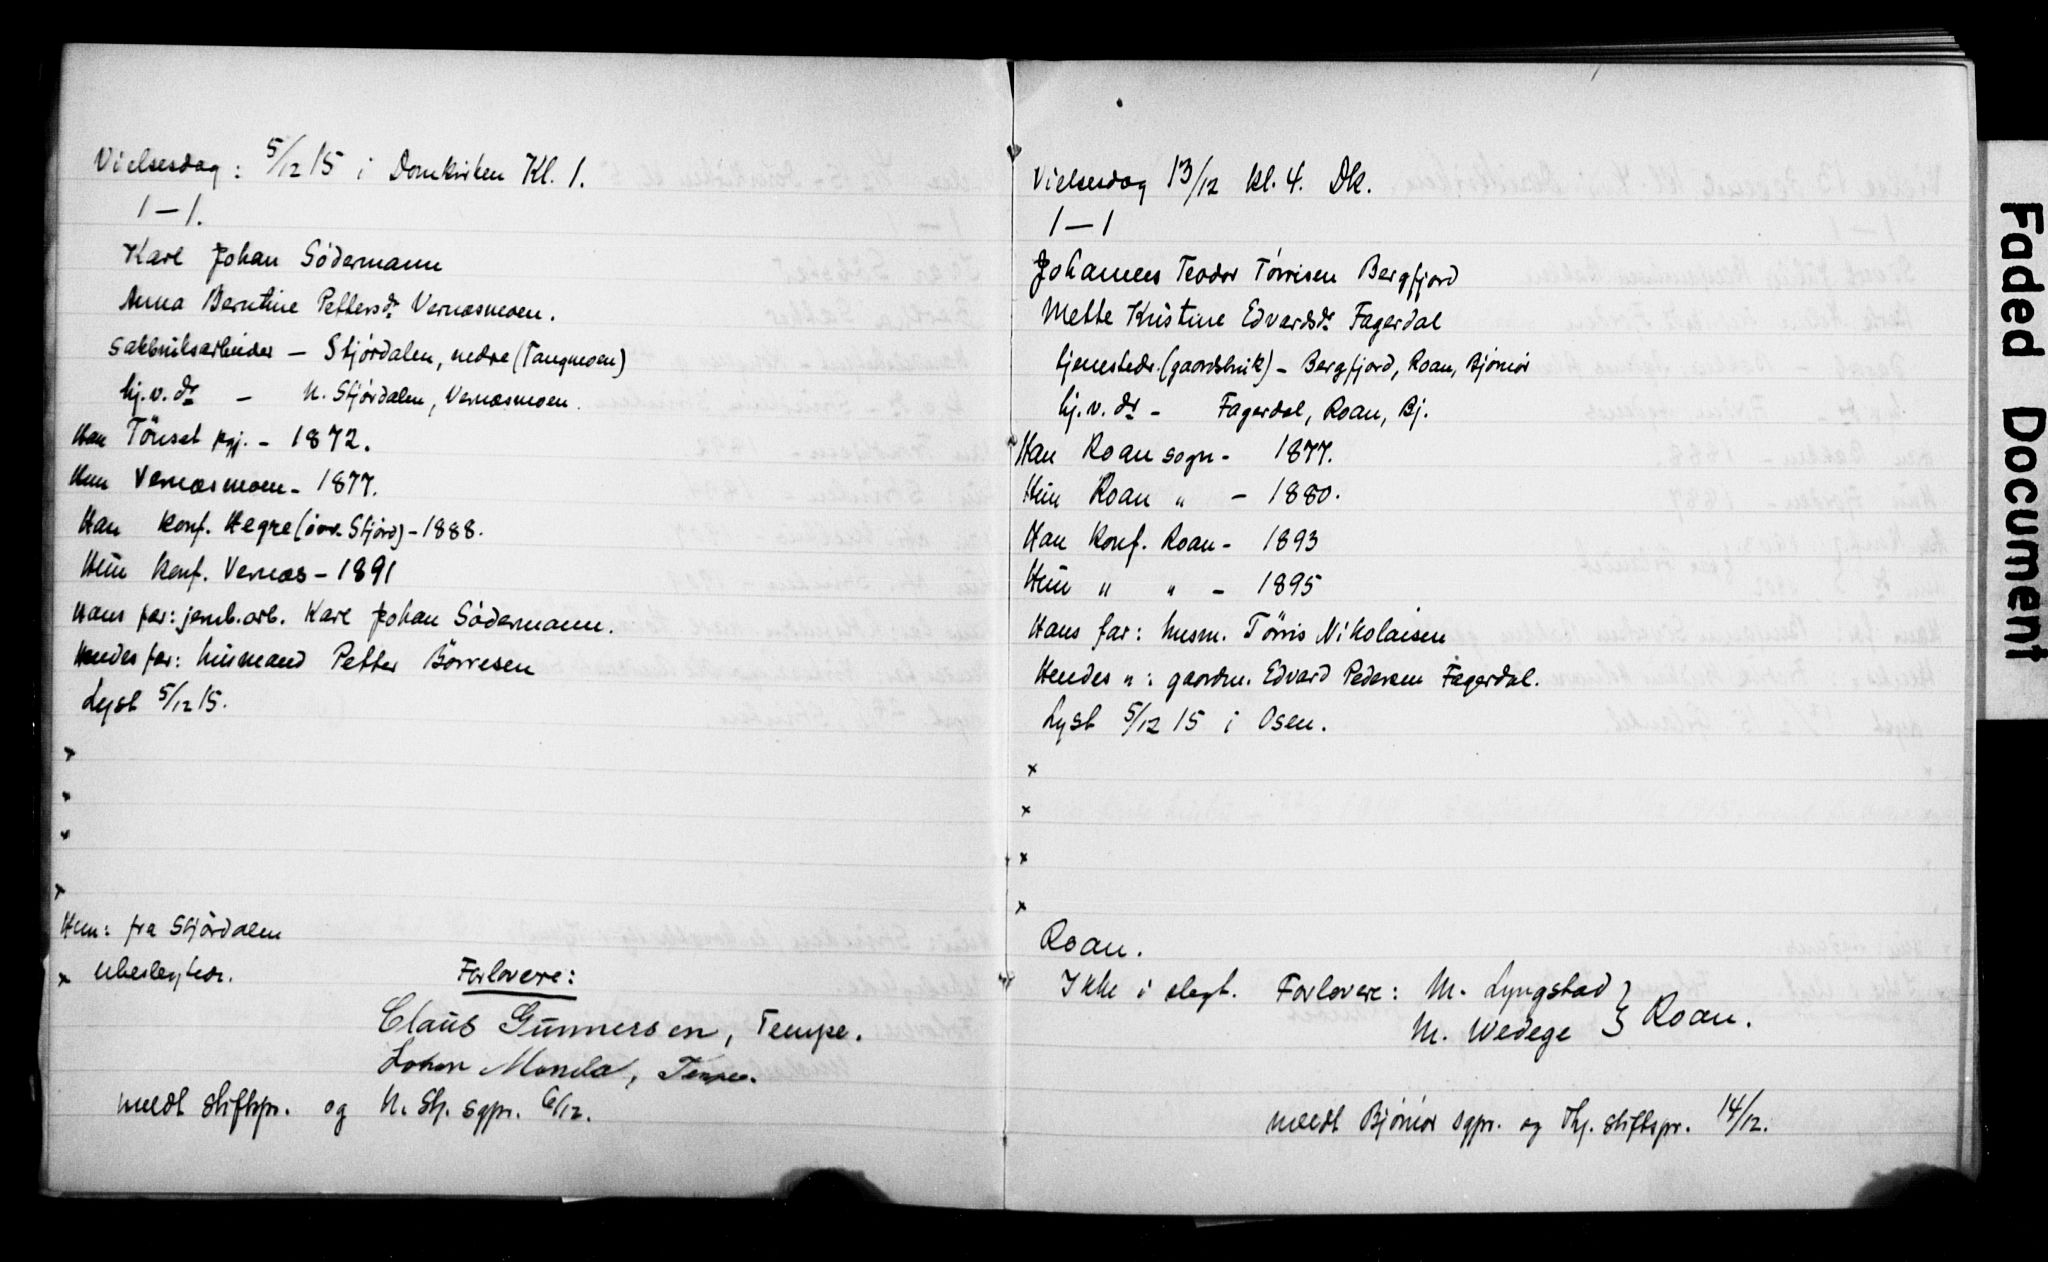 Vielsesdag: 5/12 15 i Domkirken Kl. 1.
1 — 1.
Karl Johan Södermann
Anna Berntine Pettersdr Vernæsmoen.
sagbruksarbeider — Stjørdalen, nedre (Tangmoen)
hj.v. dr — N. Stjørdalen, Vernæsmoen.
Han Tönset pgj. - 1872.
Hun Vernæsmoen - 1877.
Han konf. Hegre (övr. Stjörd) - 1888.
Hun konf. Vernæs - 1891
Hans far: jernb.arb. Karl Johan Södermann.
Hendes far: husmand Petter Börresen
Lyst 5/12 15.
x
x
x
x
Hun: fra Stjördalen
x ubeslegtede.
Forlovere:
Claus Gunnersen, Tempe.
Johan, Tempe.
meldt stiftspr. og N. Stj. sgpr. 6/12.
Vielsesdag 13/12 kl. 4. Dk.
1 — 1
Johannes Teodor Törrisen Bergfjord
Mette Kristine Edvardsdr Fagerdal
tjenestedr. (gaardsbruk) - Bergfjord, Roan, Bjørnör
hj. v. dr - Fagerdal, Roan, Bj.
Han Roan sogn - 1877.
Hun Roan " - 1880.
Han Konf. Roan - 1893
Hun " " - 1895
Hans far: husm. Törris Nikolaisen
Hendes ": gaardm. Edvard Pedersen Fagerdal.
Lyst 5/12 15 i Osen.
x
x
x
x
Roan.
Ikke i slegt. Forlovere: M. Lyngstad } Roan.
M. Wedege
meldt Bjørnör sgpr. og Thj. stiftspr. 14/12.
Faded Document